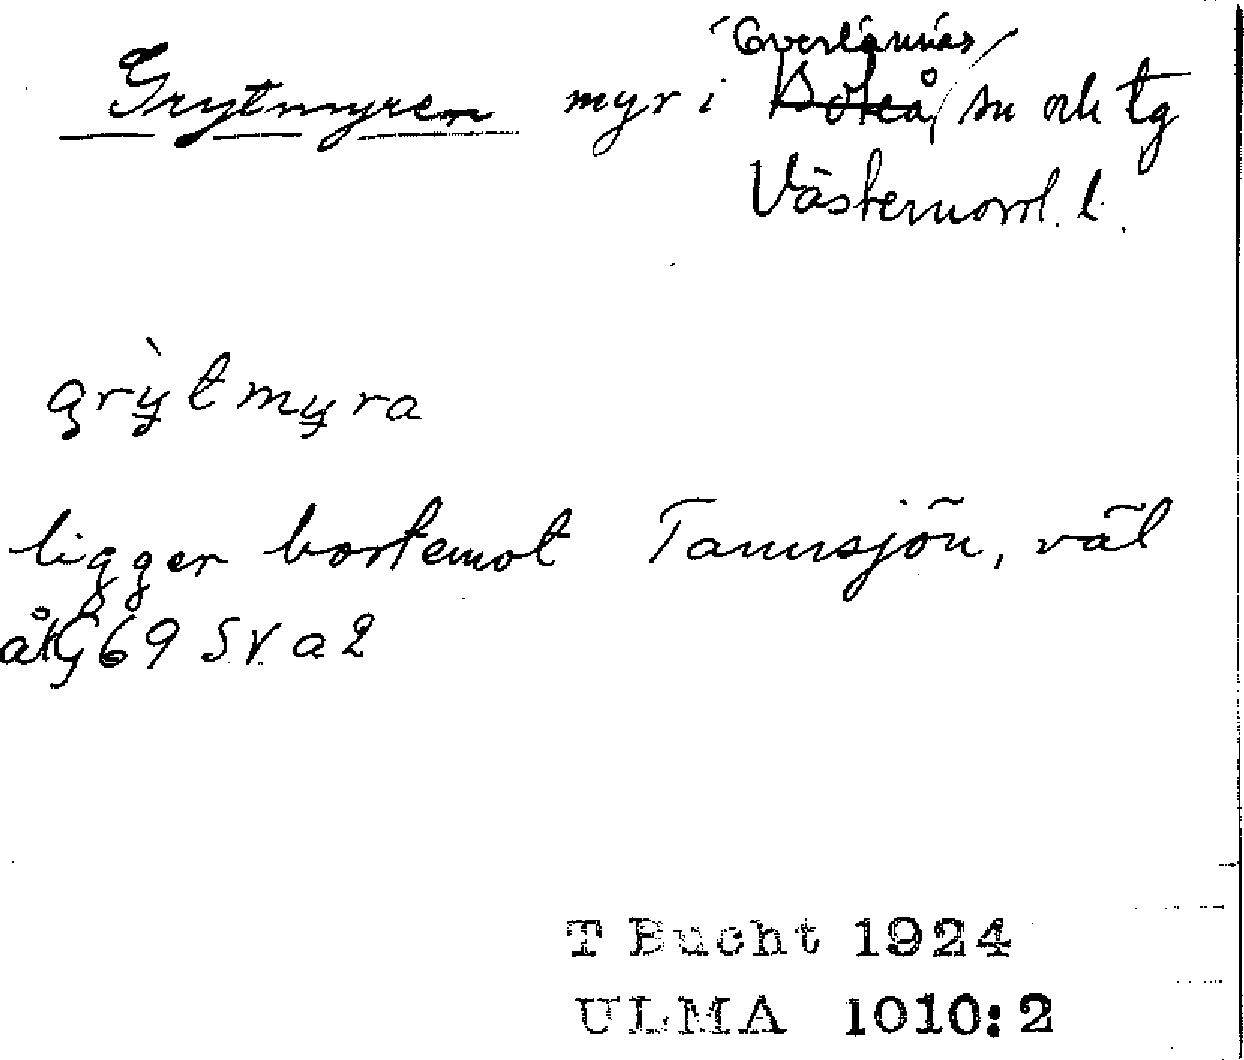 Överlännäs
Grytmyren myr i Boteå sn och tg
Västernorrl. l.
grỳtmyra
ligger bortemot Tannsjön, väl
åkG69 SV a2
T Bucht 1924
ULMA 1010:2